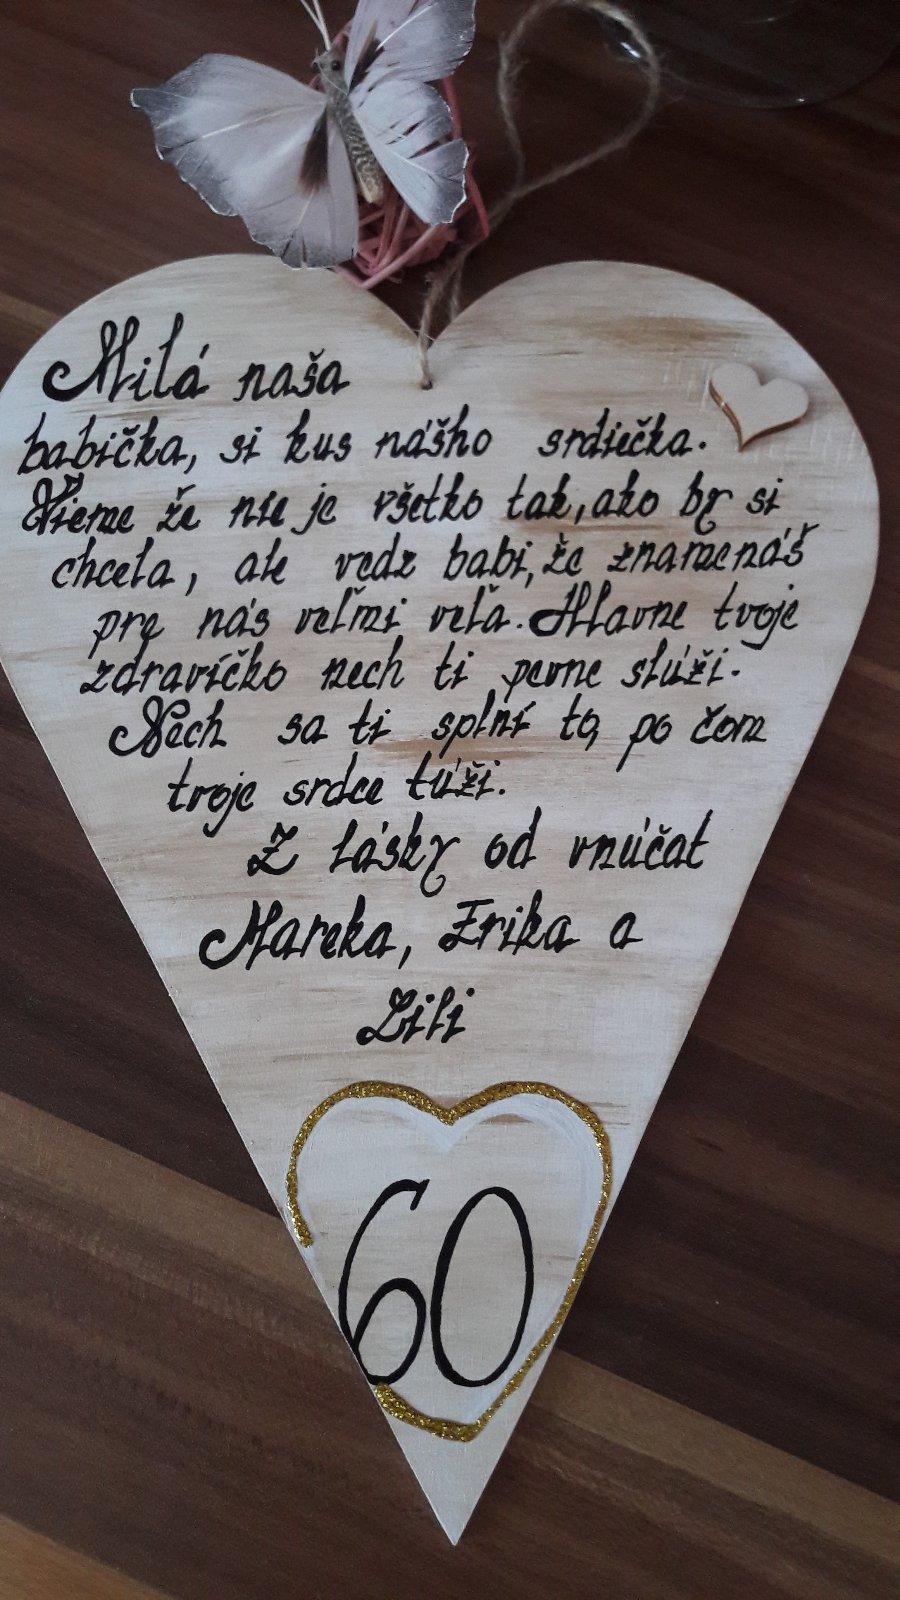 Milá naša
babička, si kus nášho srdiečka.
Vieme že nie je všetko tak, ako by si
chcela, ale vedz babi, že znamenáš
pre nás veľmi veľa. Hlavne tvoje
zdravíčko nech ti pevne slúži.
Nech sa ti splní to, po čom
tvoje srdce túži.
Z lásky od vnúčat
Mareka, Erika a
Lili
60